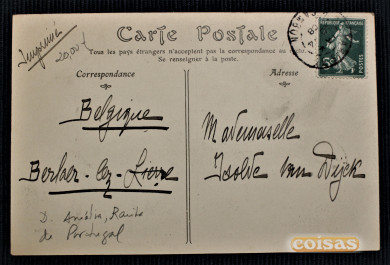 Carte Postale
Tous les pays étrangers n'acceptent pas la correspondance au recto.
Se renseigner à la poste.
Imprimé
20,00
Correspondance
Belgique
Berlaer-lez-Lierre
D. Amélia, Rainha
de Portugal
Adresse
Mademoiselle
Isolde van Dijck
REPUBLIQUE FRANÇAISE
5c
POSTES
coisas